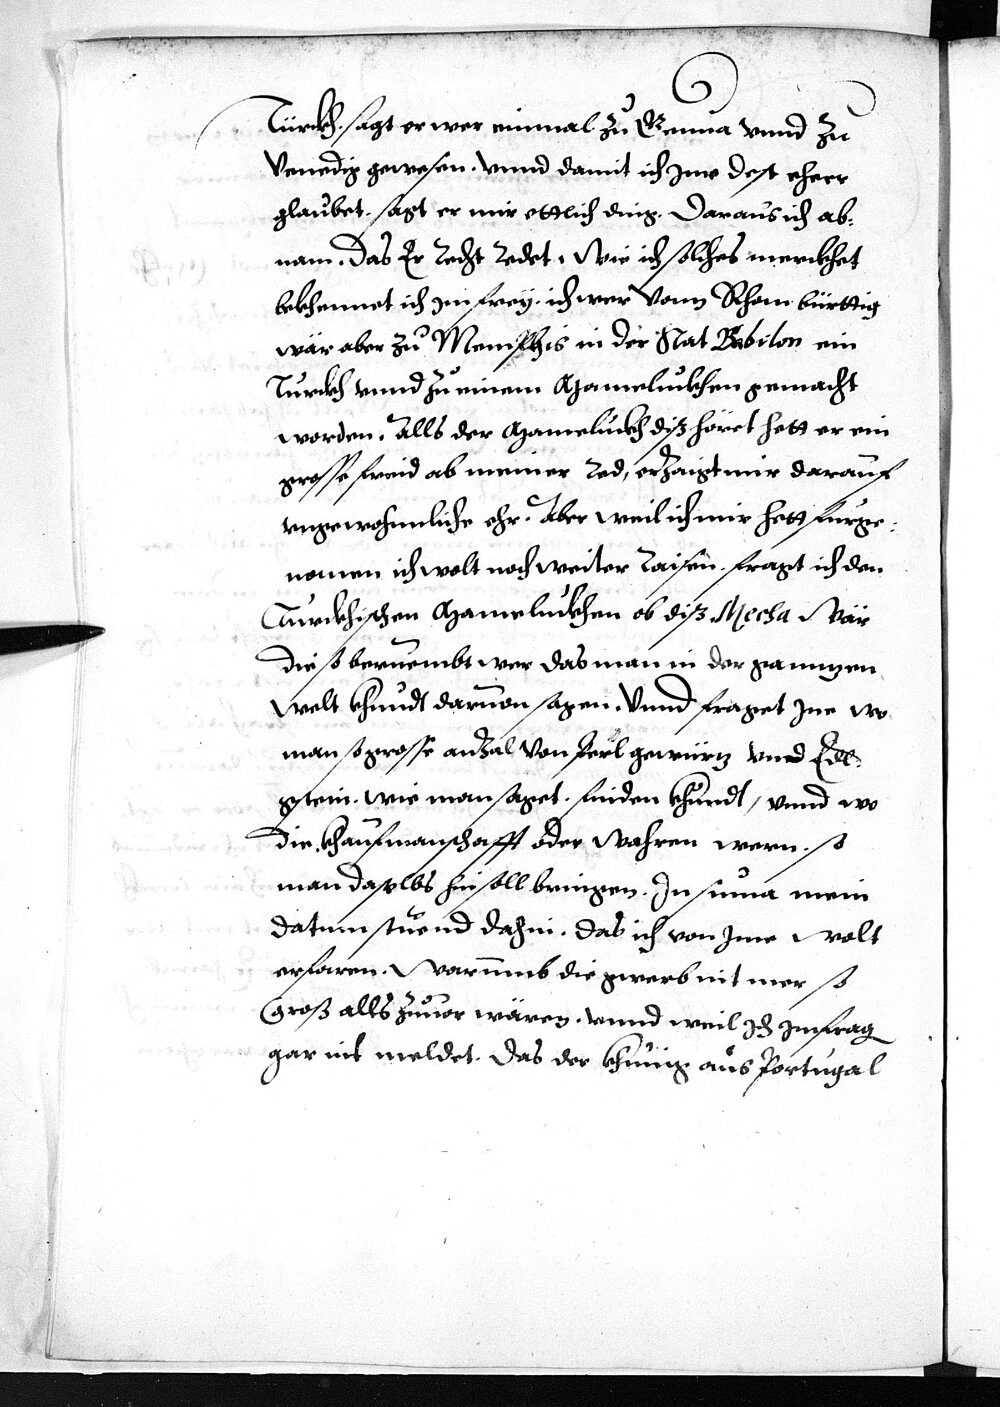 Türckh. sagt er wer einmal zu Genua vnnd zu
Venedig gewesen. vnnd damit ich Ime dest eheer
glaubet. sagt er mir ettlich ding. Daraus ich ab:
nam. Das Er Recht Redet. Wie ich solches merckhet
bekhennet ich Im frey. ich wer Vonn Rhom bürttig
wär aber zu Memphis in der Stat Babilon ein
Türckh vnnd zu einem Mameluckhen gemacht
worden. Alls der Mameluckh diß höret hett er ein
grosse freid ab meiner Red, erzaigt mir darauf
vngewohnnliche ehr. Aber weil ich mir hett furge:
nomen ich wolt noch weiter Raisen. fragt ich den
Türckhischen Mameluckhen ob diß Mecha Wär
die so beruembt wer das man in der ganntzen
Welt khundt daruon sagen. Vnnd fraget Ine wo
man so grosse anzal Von Perl gewürtz vnnd Edl:
gstein. wie man saget. finden khundt, vnnd wo
die khaufmanschafft oder Wahren wern. so
man daselbs hin soll bringen. In suma mein
datum stuend dahin. das ich von Ime Wolt
erfaren. Warumb die gwerb nit mer so
Groß alls zuuor wären. vnnd weil Ich Im frag
gar nit meldet. Das der khünig aus Portugal